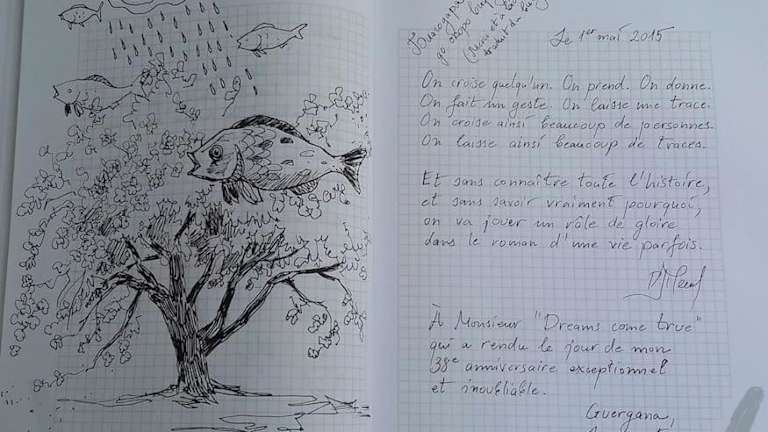 Благодаря
до скоро
(Merci et à
traduit du
Le 1er mai 2015
On croise quelqu'un. On prend. On donne.
On fait un geste. On laisse une trace.
On croise ainsi beaucoup de personnes.
On laisse ainsi beaucoup de traces.
Et sans connaître toute l'histoire,
et sans savoir vraiment pourquoi,
on va jouer un rôle de gloire
dans le roman d'une vie parfois.
À Monsieur "Dreams come true"
qui a rendu le jour de mon
38e anniversaire exceptionnel
et inoubliable.
Guergana,